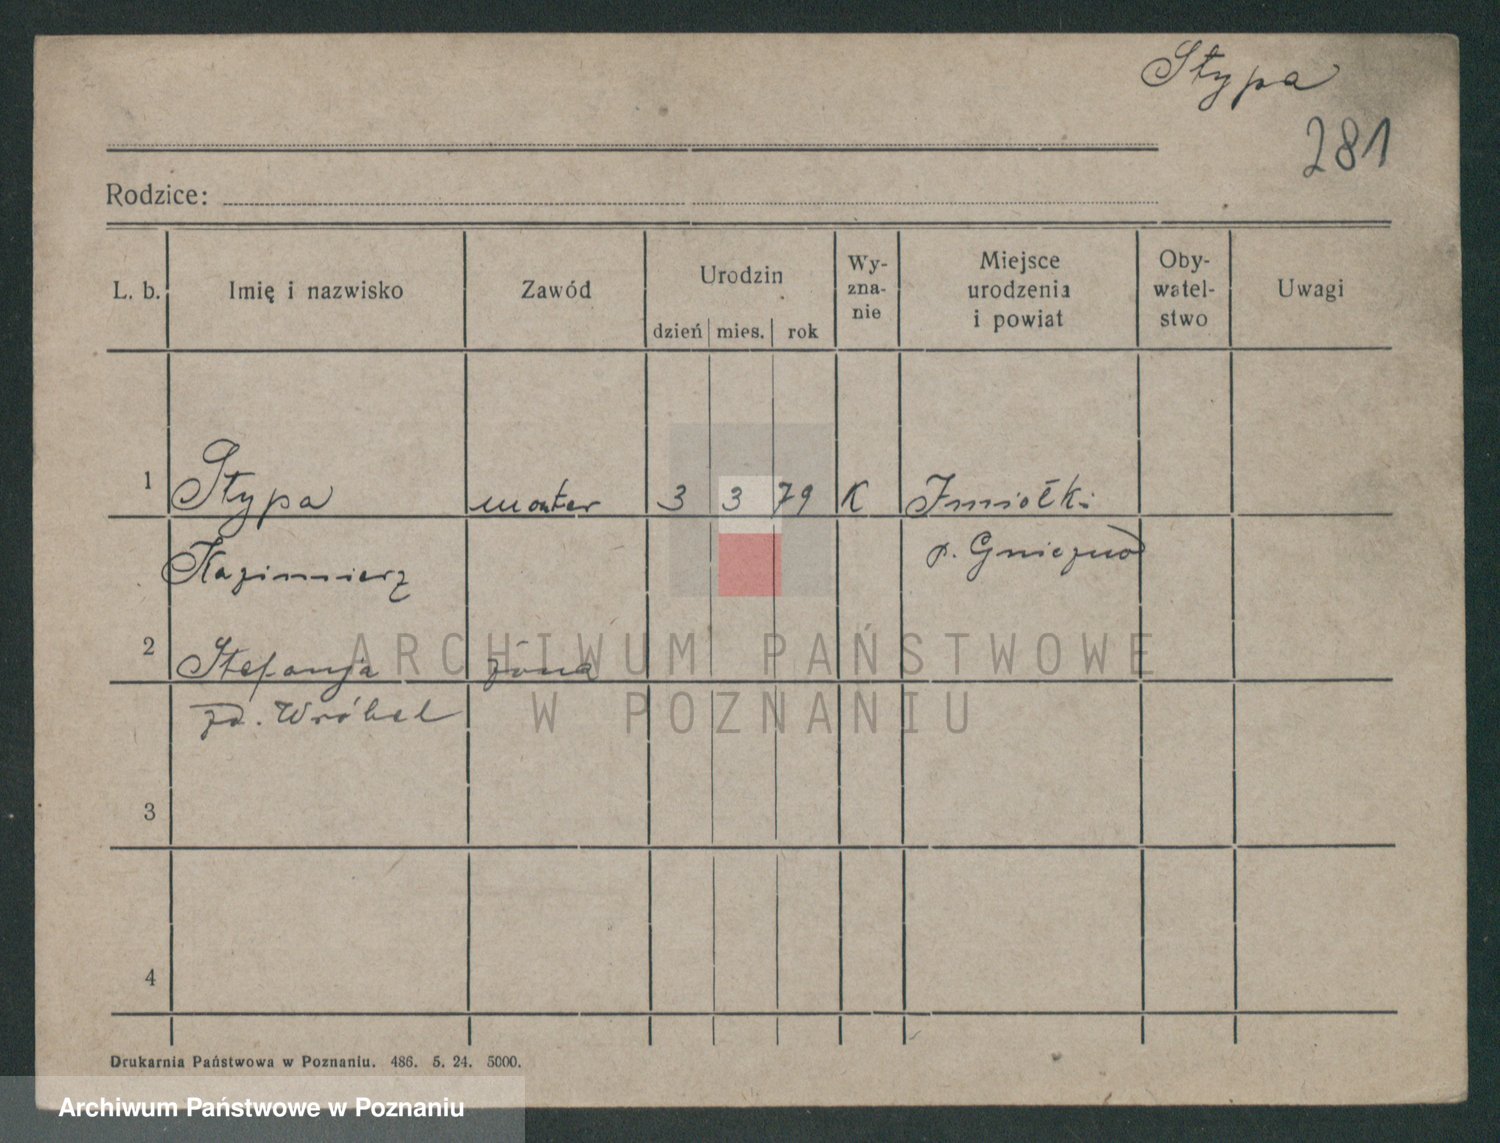 Stypa
281
Rodzice:
L. b. Imię i nazwisko Zawód Urodzin dzień mies. rok Wy-zna-nie Miejsce urodzenia i powiat Oby-watel-stwo Uwagi
1 Stypa monter 3 3 79 K Imiołki
Kazimierz p. Gniezno
2 Stefanja żona
zd. Wróbel
3
4
ARCHIWUM PAŃSTWOWE
W POZNANIU
Drukarnia Państwowa w Poznaniu. 486. 5. 24. 5000.
Archiwum Państwowe w Poznaniu